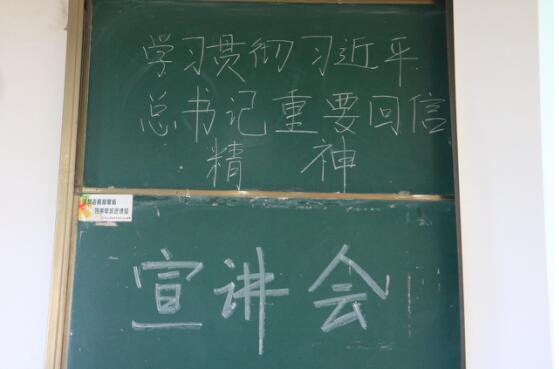 学习贯彻习近平
总书记重要回信
精 神
宣讲会